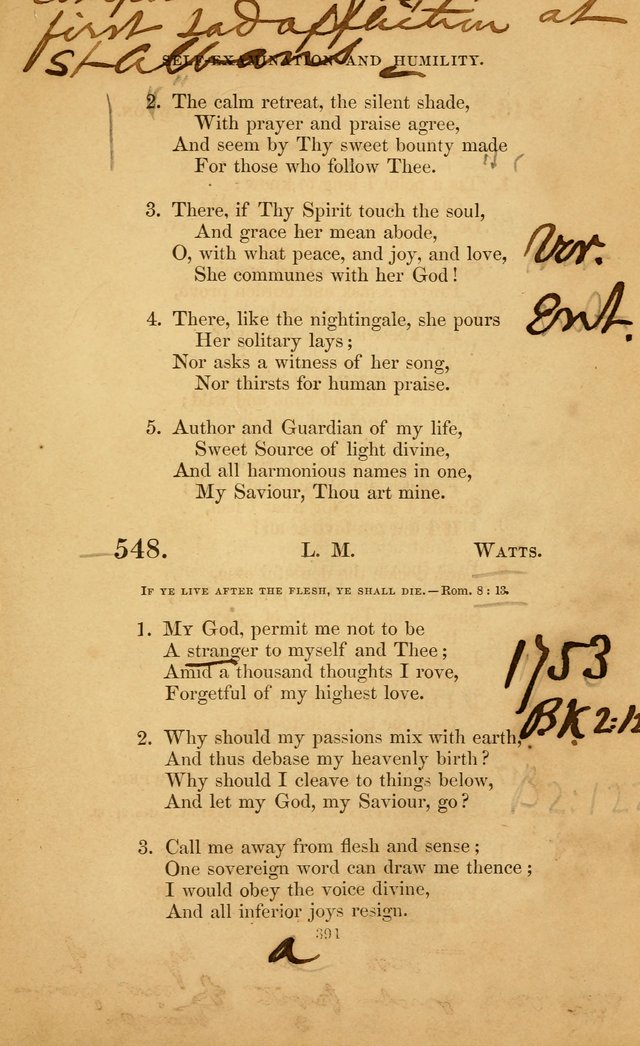 first sad affliction at
St Albans
SELF-EXAMINATION AND HUMILITY.
2. The calm retreat, the silent shade,
With prayer and praise agree,
And seem by Thy sweet bounty made
For those who follow Thee.
3. There, if Thy Spirit touch the soul,
And grace her mean abode,
O, with what peace, and joy, and love,
She communes with her God!
Var.
4. There, like the nightingale, she pours
Ent.
Her solitary lays;
Nor asks a witness of her song,
Nor thirsts for human praise.
5. Author and Guardian of my life,
Sweet Source of light divine,
And all harmonious names in one,
My Saviour, Thou art mine.
548. L. M. WATTS.
IF YE LIVE AFTER THE FLESH, YE SHALL DIE.—Rom. 8 : 13.
1. My God, permit me not to be
A stranger to myself and Thee;
Amid a thousand thoughts I rove,
Forgetful of my highest love.
1753
BK 2:12
2. Why should my passions mix with earth,
And thus debase my heavenly birth?
Why should I cleave to things below,
And let my God, my Saviour, go?
B2:122
3. Call me away from flesh and sense;
One sovereign word can draw me thence;
I would obey the voice divine,
And all inferior joys resign.
391
a